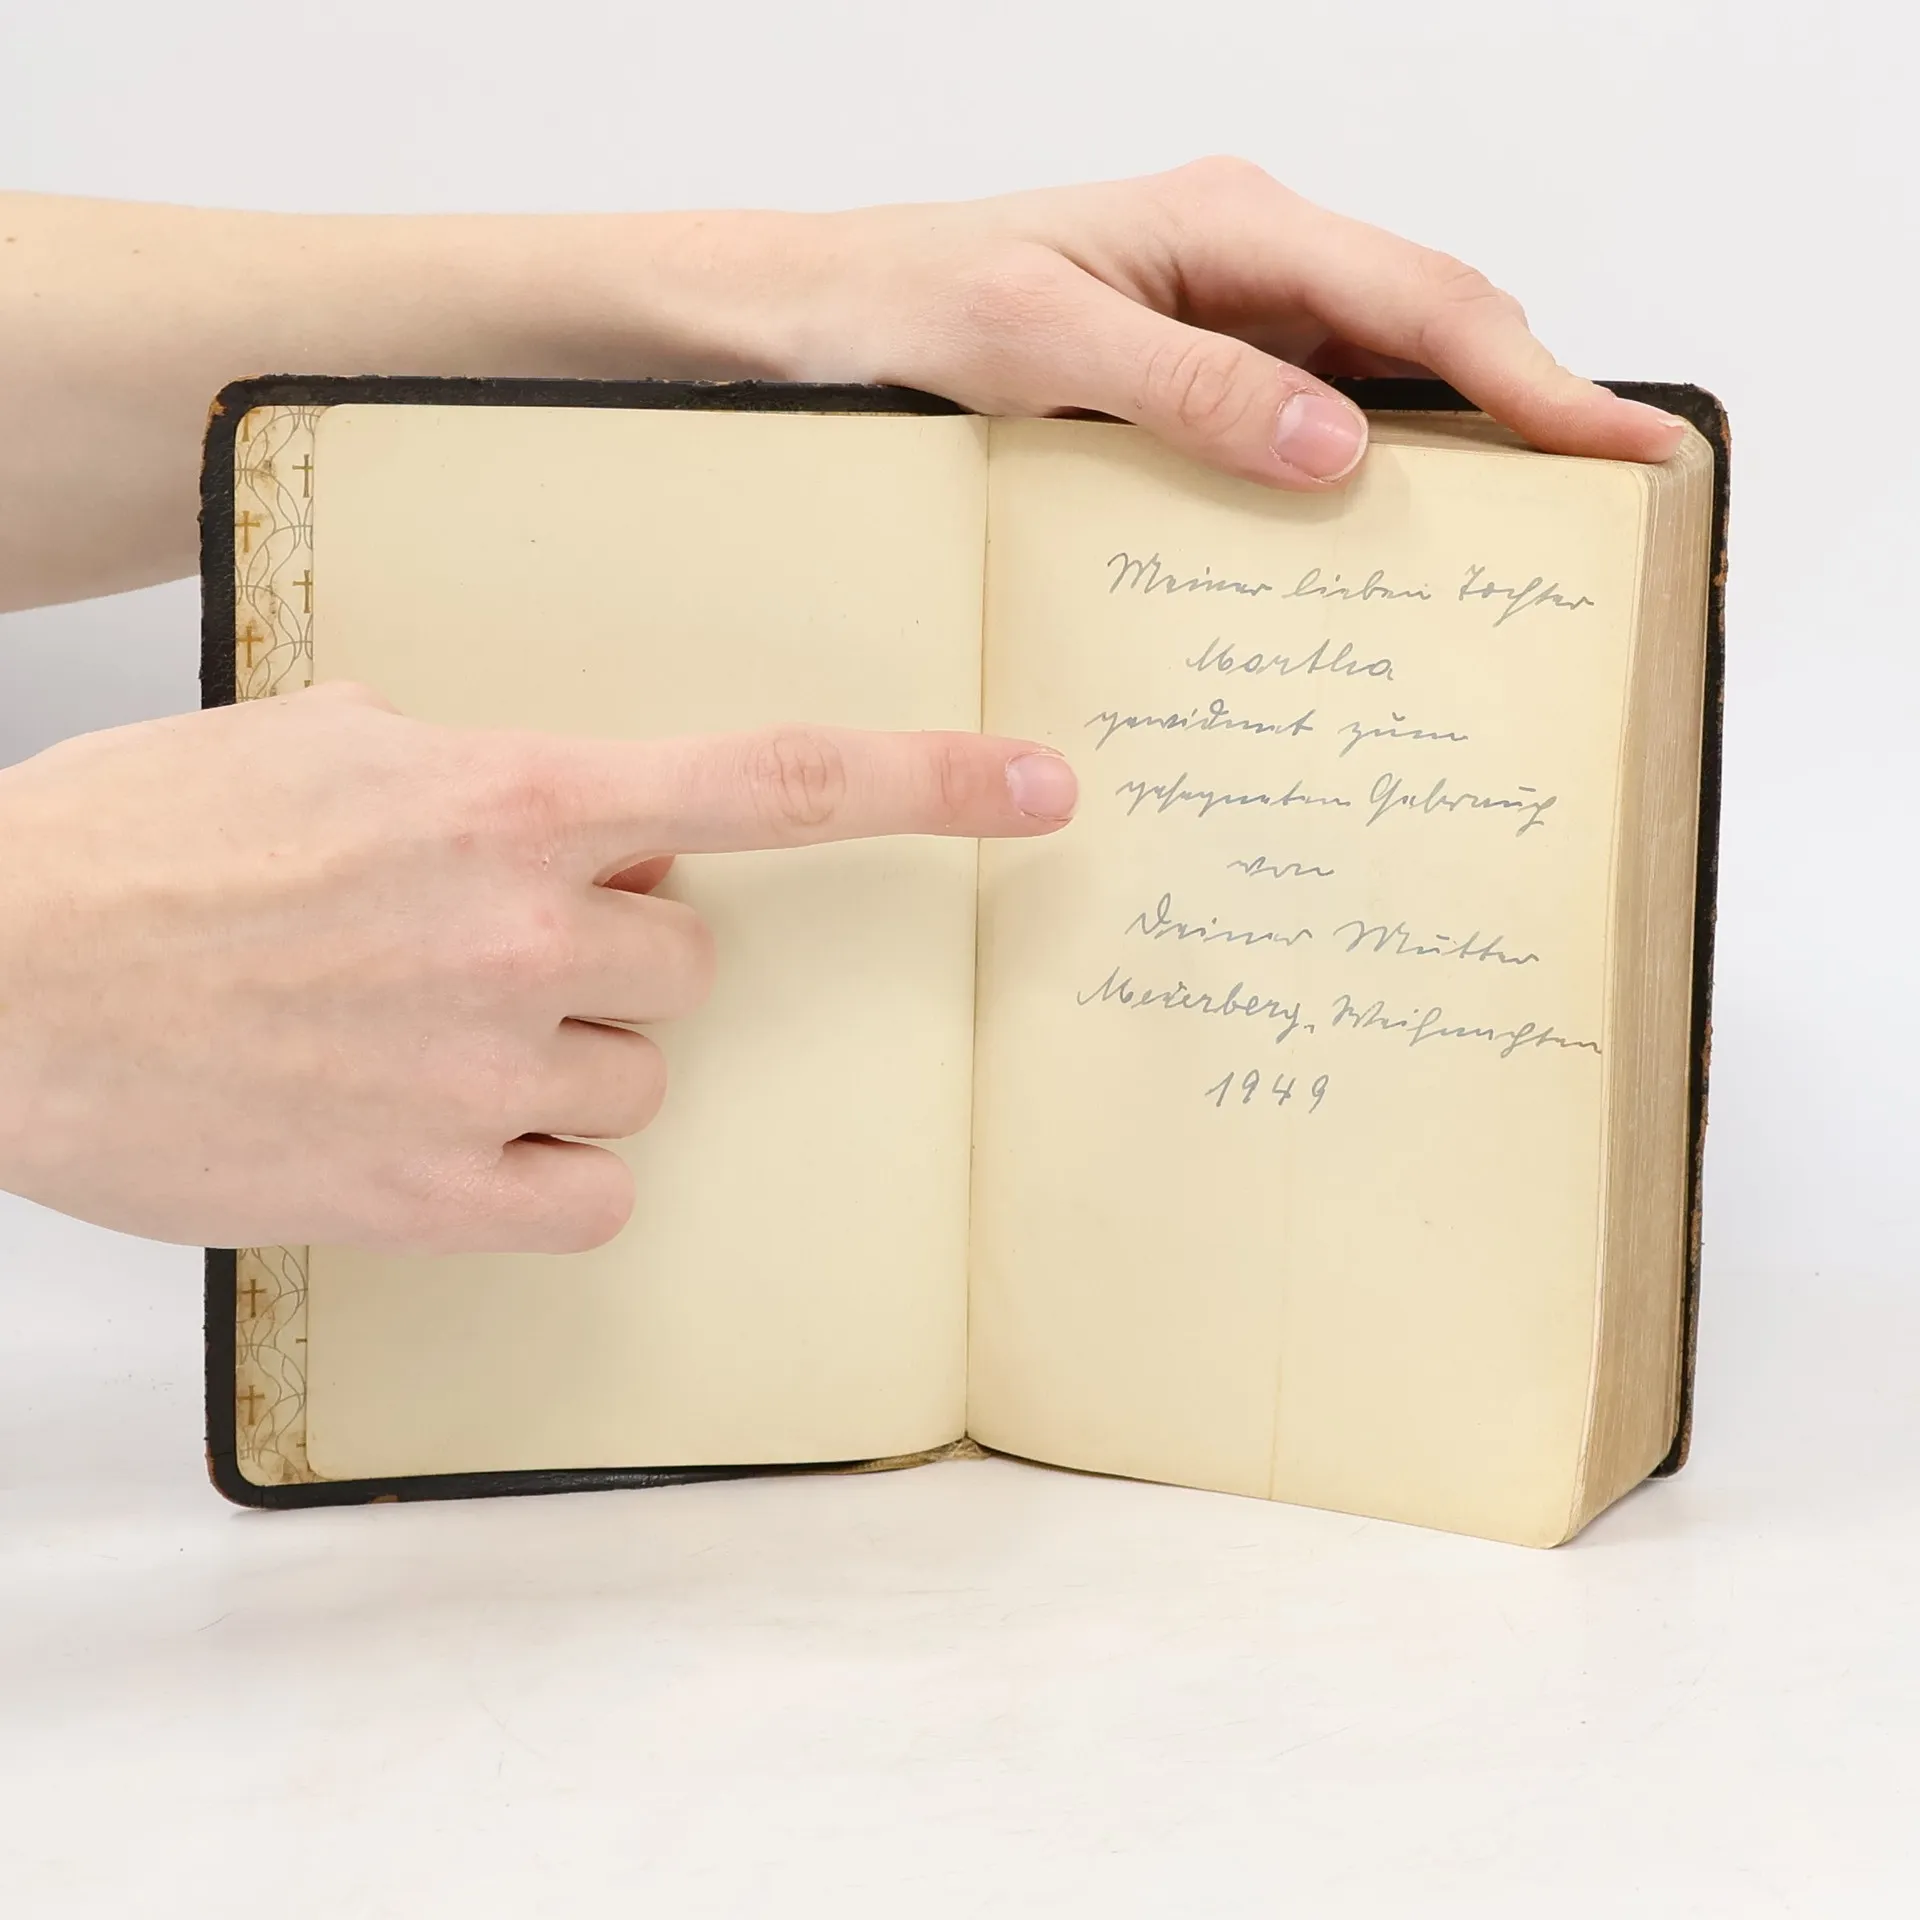 Meiner lieben Tochter
Martha
gewidmet zum
gesegneten Gebrauch
von
Deiner Mutter
Meierberg, Weihnachten
1949